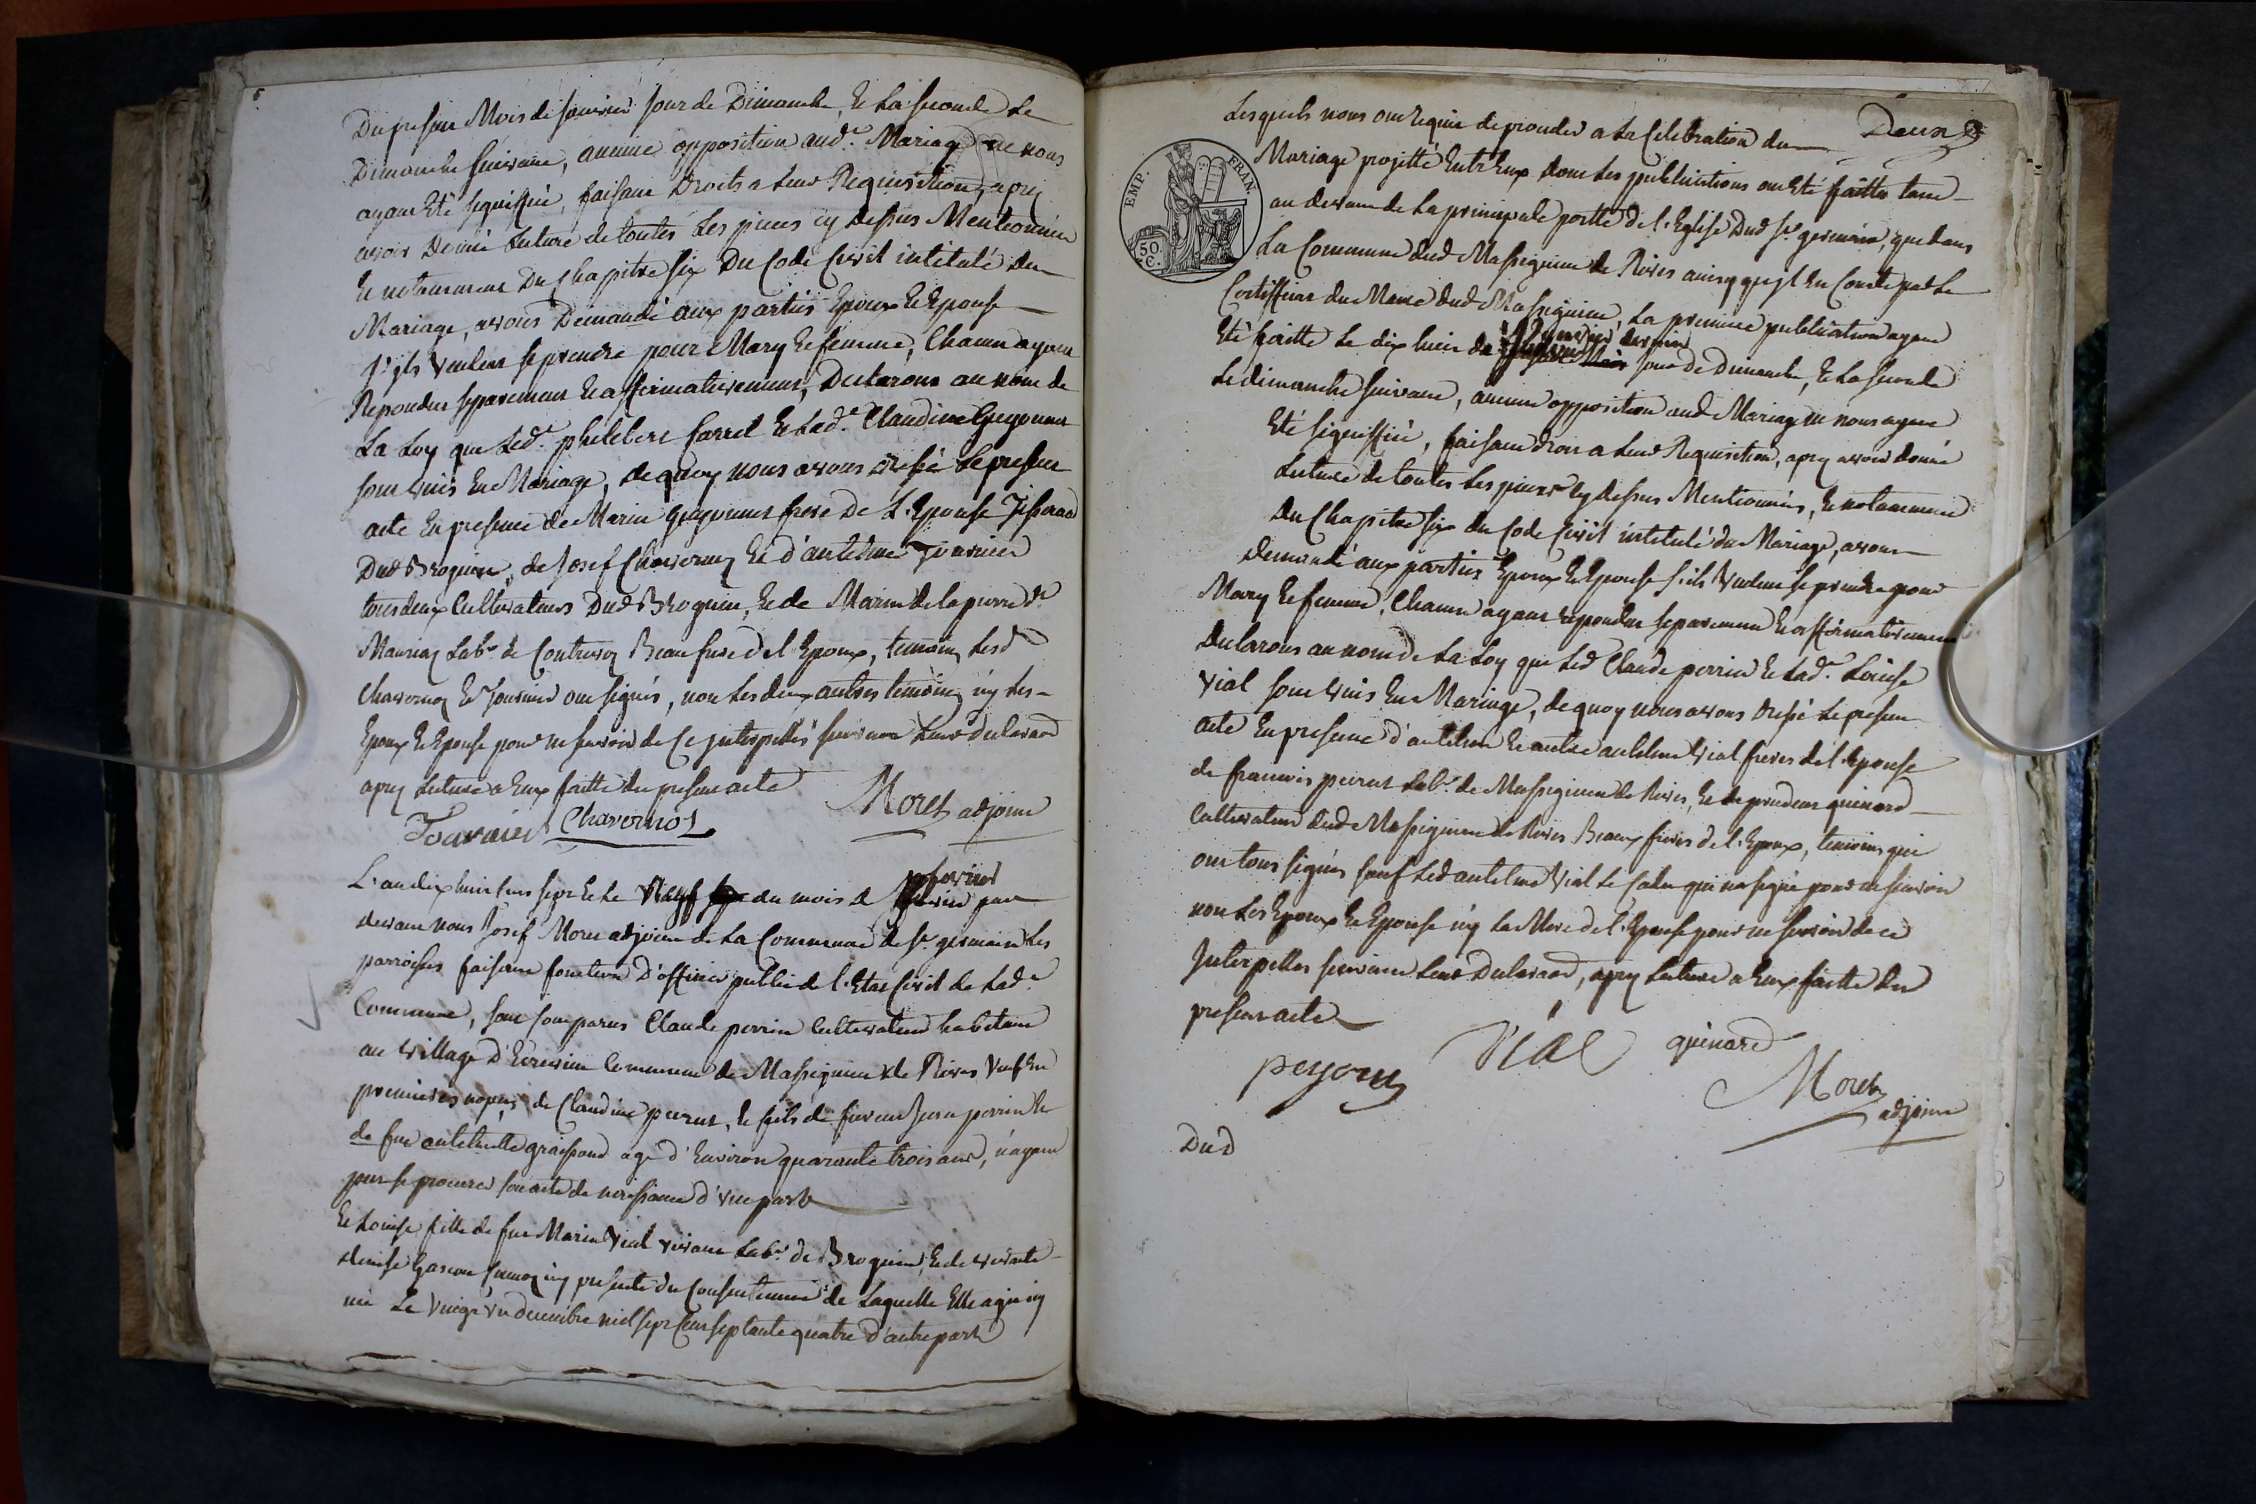 Du present Mois de janvier jour de Dimanche, Et La seconde Le
Dimanche suivant, aucune opposition aud.t Mariage ne nous
ayant Eté signiffiée, faisant Droits a Leur Requisition, apres
avoir Donné Lecture de toutes Les pieces cy dessus Mentionnées
Et notamment Du Chapitre six Du Code Civil intitulé du
Mariage, avons Demandé aux parties Epoux Et Epouse
s'ils veulent se prendre pour Mary Et femme, Chacun ayant
Repondus separement Et affirmativement, Declarons au nom de
La Loy que Led.t philibert Carrel Et Lad.e Claudine Guyonnet
sont Unis En Mariage, de quoy nous avons dressé Le present
acte En presence de Marin Guyonnet frere De L'Epouse Tisserand
Dud Brognin, de Josef Chavornoz Et d'antelme Tournier
tous deux Cultivateurs Dud Brognin, Et de Marin delapierre d.t
Lab.r de Contrevoz Beau frere de l'Epoux, temoins Lesd
Chavornoz Et Tournier ont signés, non Les deux autres temoins ny Les
Epoux Et Epouse pour ne savoir de Ce jnterpellés suivant Leur Declaraon
apres Lecture a Eux faitte du present acte
Moret adjoint
Tournier Chavornoz
L'an dix huit Cent sept Et Le Neuf du mois de fevrier par
devant nous Josef Moret adjoint de La Commune de S.t germain Les
parroisses faisant fonction D'officier public de l'Etat Civil de Lad.e
Commune, sont Comparus Claude perrin Cultivateur habitant
au village D'Ecrivieu Commune de Massignieu de Rives veuf En
premieres nopces de Claudine peirut, Et fils de Jean perrin Et
de fue antelmette graspond agé d'Environ quarante trois ans, n'ayant
pu se procurer son acte de naissance d'Une part
Et Louise fille de feu Marin Vial vivant Lab.r de Brognin, Et de vivante
denise Gascon jcy presente du Consentement de Laquelle Elle agit cy
née Le vingt Un decembre mil sept Cent septante quatre d'autre part
Deux
Lesquels nous ont Requis de proceder a La Celebration du
EMP. FRAN.
50 C.
Mariage projetté Entr'Eux dont Les publications ont Eté faittes tant
au devant de La principale portte de l'Eglise Dud S.t germain, que dans
La Commune dud Massignieu de Rives ainsy qu'jl En Conste par Le
Certifficat du Maire dud Massignieu, La premiere publication ayant
Eté faitte Le dix huit de janvier dernier jour de Dimanche, Et La seconde
Le dimanche suivant, aucune opposition aud Mariage ne nous ayant
Eté signiffiée, faisant droit a Leur Requisition, apres avoir donné
Lecture de toutes Les pieces cy dessus Mentionnées, Et notamment
Du Chapitre six du Code Civil intitulé du Mariage, avons
demandé aux parties Epoux Et Epouse s'ils veulent se prendre pour
Mary Et femme, Chacun ayant repondus separement Et affirmativement
Declarons au nom de La Loy que Led Claude perrin Et Lad.e Louise
vial sont Unis En Mariage, de quoy nous avons dressé Le present
acte En presence d'antelme Et autre antelme vial freres de l'Epouse
de francois peirut Lab.r de Massignieu de Rives, Et de prudent quinard
Cultivateur dud Massignieu de Rives Beaux freres de l'Epoux, temoins qui
ont tous signés sauf Led antelme Vial Le Cadet qui n'a signé pour ne savoir
non Les Epoux Et Epouse ny La Mere de l'Epouse pour ne savoir de ce
Jnterpellés suivant Leur Declaraon, apres Lecture a Eux faitte du
present acte
Vial quinard
peyrout
Moret
adjoint
Dud